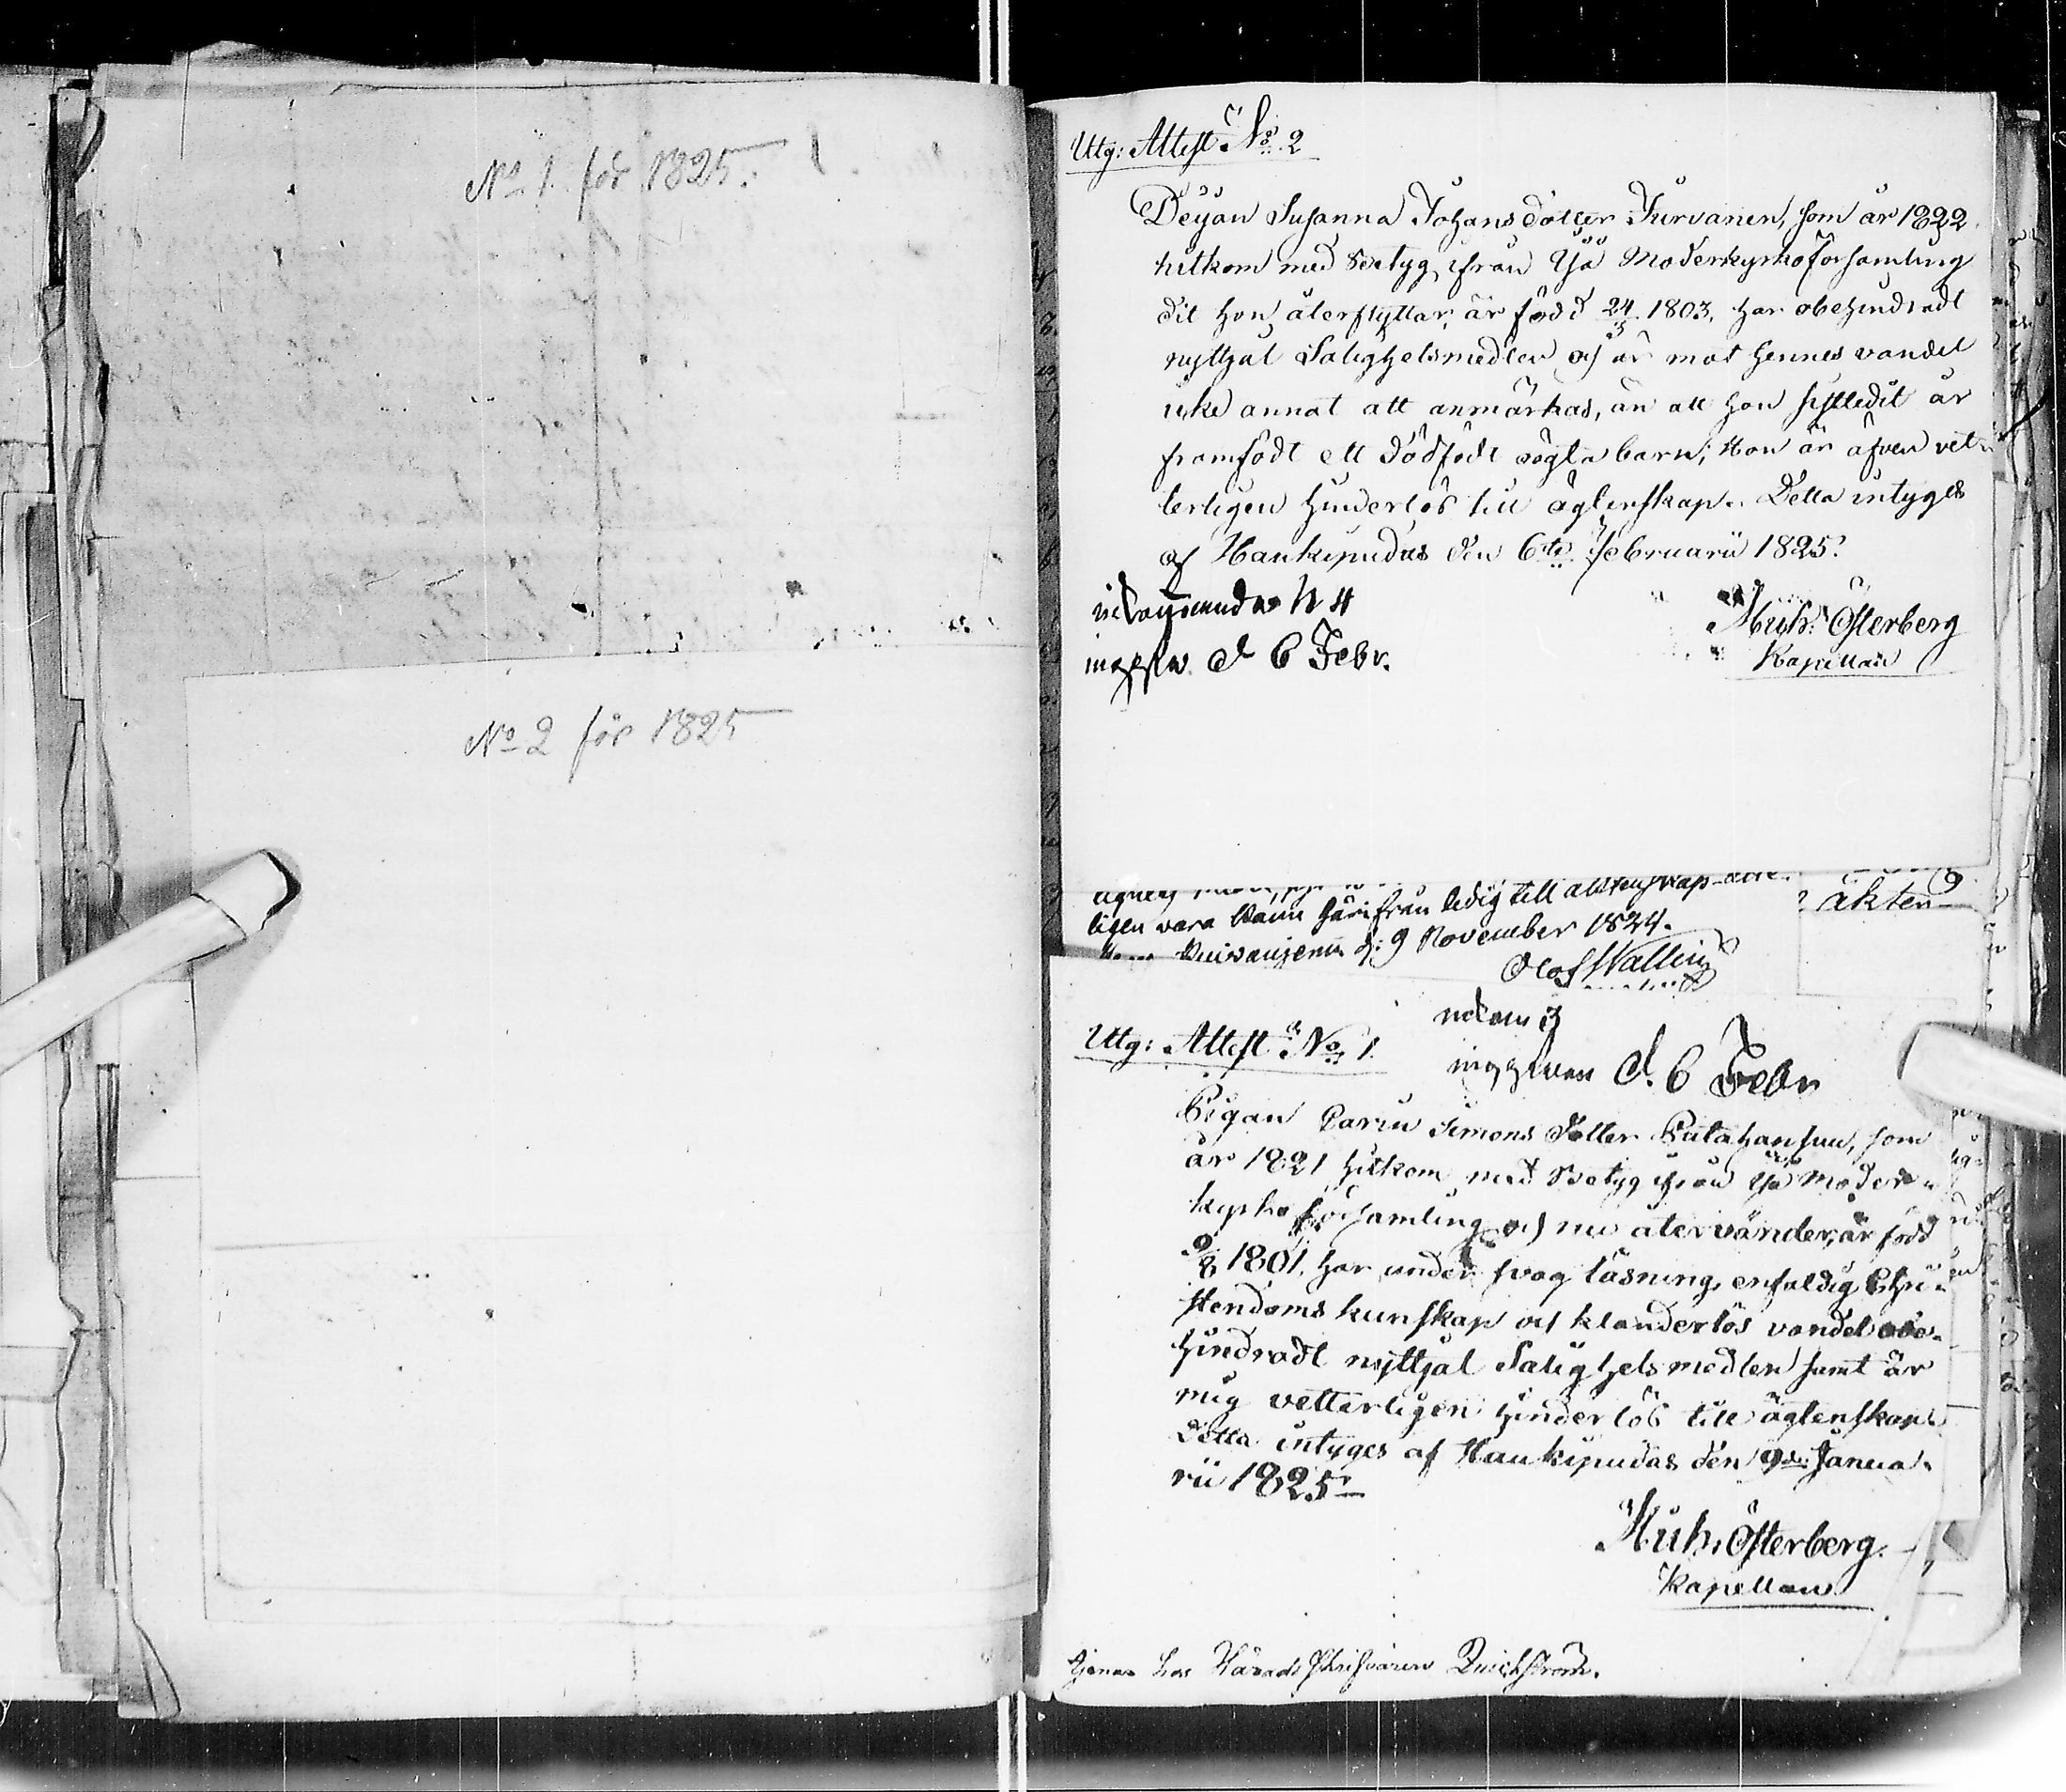 No 1. för 1825.
No 2 för 1825
Utg: Attest No. 2
Dejan Susanna Johansdotter Turvanen, som år 1822
hitkom med Betyg ifrån Ijå Moderkyrkoförsamling
dit hon återflyttar, är född 24/3 1803, har obehindradt
nyttjat Salighetsmedlen och är mot hennes vandel
icke annat att anmärkas, än att hon sistledit år
framfödt ett dödfödt oägta barn; Hon är äfven vet-
terligen hinderlös till ägtenskap. Detta intyges
af Haukipudas den 6te Februarii 1825.
N 4
d 6 Febr.
Mich: Österberg
Kapellan
ligen vara ledig till
d: 9 November 1824.
Olof Wallin
äkten
Utg: Attest No 1.
d. 6 Febr
Pigan Carin Simons Dotter, som
år 1821 hitkom med Betyg ifrån Ijå Moder-
kyrko församling och nu återvänder, är född
9/8 1801. har under svag läsning, enfaldig Chri-
stendoms kunskap och klanderlös vandel obe-
hindradt nyttjat Salighets medlen samt är
mig vetterligen hinderlös till ägtenskap.
Detta intyges af Haukipudas den 9de Janua-
rii 1825.
Mich: Österberg.
Kapellan
tjenar hos Härads Skrifvaren